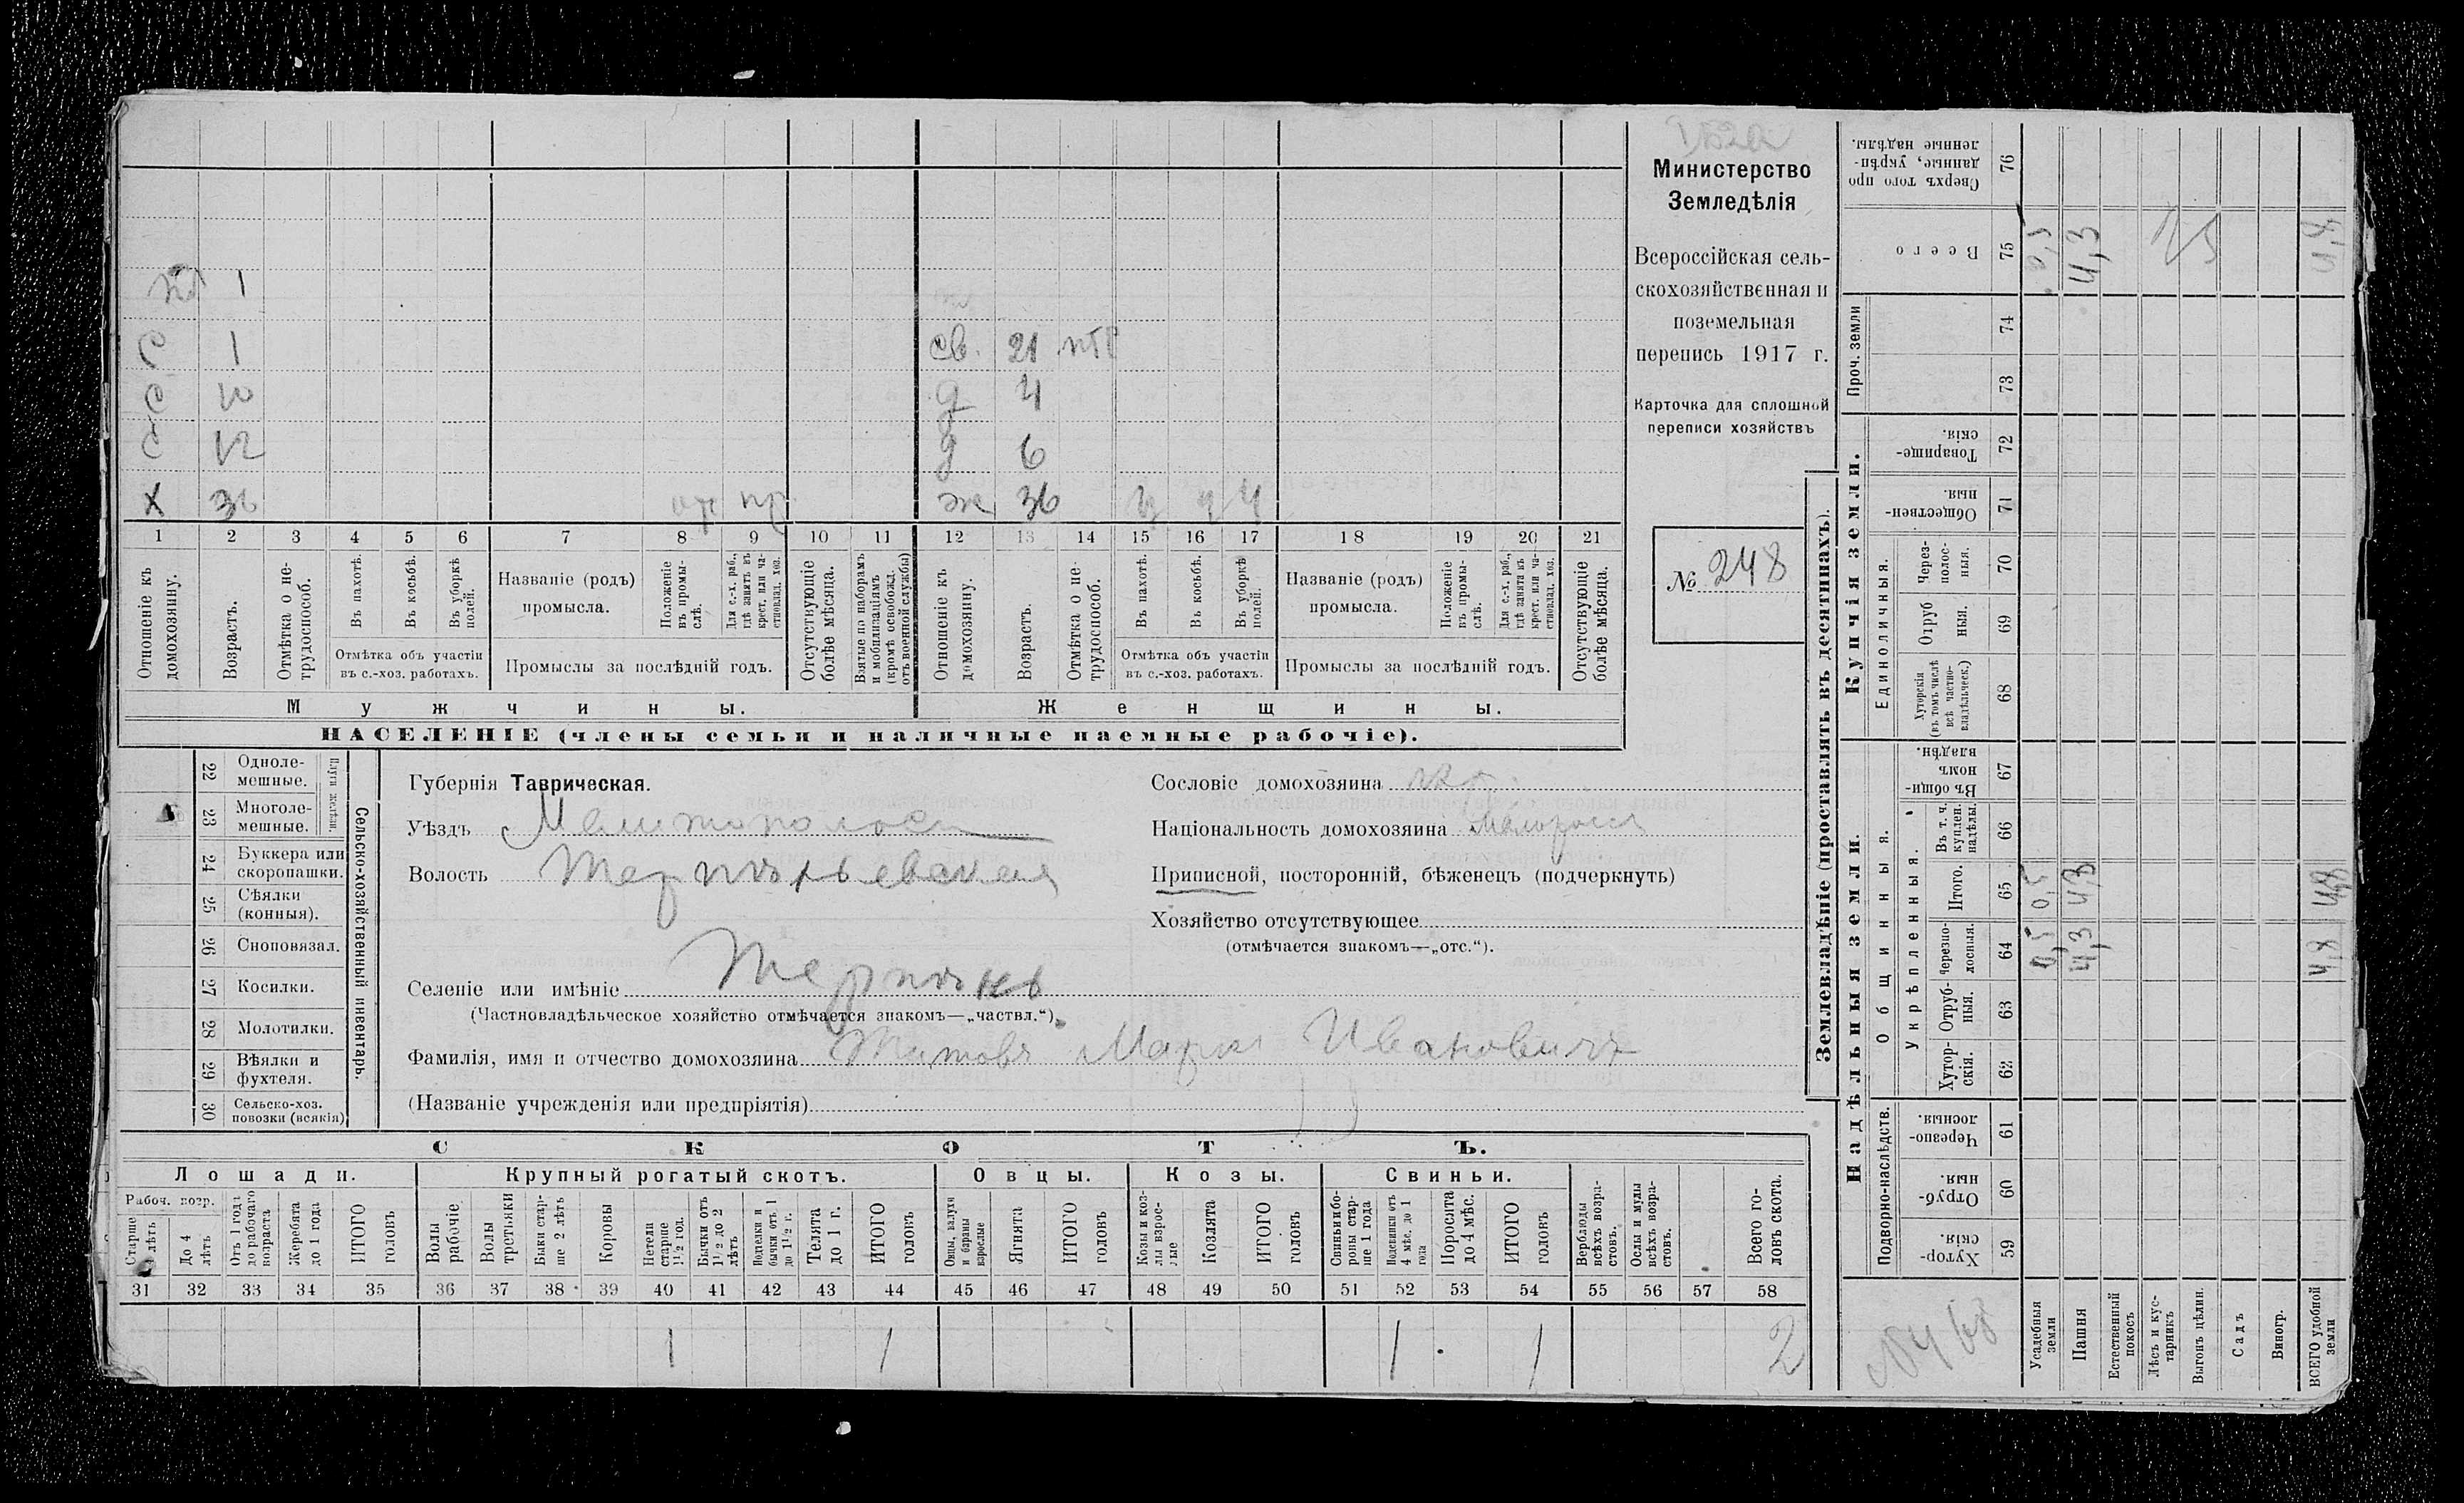 Министерство
Земледѣлія
Всероссійская сель-
скохозяйственная и
поземельная
перепись 1917 г.
Карточка для сплошной
переписи хозяйствъ
№ 248
1
С 1 св. 21
С 10 д 4
С 12 д 6
Х 36 ж 36
1 2 3 4 5 6 7 8 9 10 11 12 13 14 15 16 17 18 19 20 21
Отношеніе къ домохозяину.
Возрастъ.
Отмѣтка о не-трудоспособ.
Въ пахотѣ.
Въ косьбѣ.
Въ уборкѣ полей.
Отмѣтка объ участіи
въ с.-хоз. работахъ.
Названіе (родъ)
промысла.
Положеніе въ промы-слѣ.
Для с.-х. раб., гдѣ занятъ въ крест. или ча-стновлад. хоз.
Промыслы за послѣдній годъ.
Отсутствующіе болѣе мѣсяца.
Взятые по наборамъ и мобилизаціямъ (кромѣ освобожд. отъ военной службы)
Отношеніе къ домохозяину.
Возрастъ.
Отмѣтка о не-трудоспособ.
Въ пахотѣ.
Въ косьбѣ.
Въ уборкѣ полей.
Отмѣтка объ участіи
въ с.-хоз. работахъ.
Названіе (родъ)
промысла.
Положеніе въ промы-слѣ.
Для с.-х. раб., гдѣ занята въ крест. или ча-стновлад. хоз.
Промыслы за послѣдній годъ.
Отсутствующіе болѣе мѣсяца.
Мужчины.
Женщины.
НАСЕЛЕНІЕ (члены семьи и наличные наемные рабочіе).
22 Однолемешные.
23 Многолемешные.
Плуги желѣзн.
24 Буккера или скоропашки.
25 Сѣялки (конныя).
26 Сноповязал.
27 Косилки.
28 Молотилки.
29 Вѣялки и фухтеля.
30 Сельско-хоз. повозки (всякія)
Сельско-хозяйственный инвентарь.
Губернія Таврическая.
Уѣздъ Мелитопольск
Волость Терпѣньевская
Селеніе или имѣніе Терпѣнье
(Частновладѣльческое хозяйство отмѣчается знакомъ—„частвл.“).
Фамилія, имя и отчество домохозяина Титовъ Марк Ивановичъ
(Названіе учрежденія или предпріятія)
Сословіе домохозяина
Національность домохозяина Малоросс
Приписной, посторонній, бѣженецъ (подчеркнуть)
Хозяйство отсутствующее
(отмѣчается знакомъ—„отс.“).
СКОТЪ.
Лошади. Крупный рогатый скотъ. Овцы. Козы. Свиньи.
Рабоч. возр.
Старше 4 лѣтъ
До 4 лѣтъ
Отъ 1 года до рабочаго возраста
Жеребята до 1 года
ИТОГО головъ
Волы рабочіе
Волы третьяки
Быки стар-ше 2 лѣтъ
Коровы
Нетели старше 1½ год.
Бычки отъ 1½ до 2 лѣтъ
Подтелки и бычки отъ 1 до 1½ г.
Телята до 1 г.
ИТОГО головъ
Овцы, валухи и бараны взрослые
Ягнята
ИТОГО головъ
Козы и коз-лы взрос-лые
Козлята
ИТОГО головъ
Свиньи и бо-ровы стар-ше 1 года
Подсвинки отъ 4 мѣс. до 1 года
Поросята до 4 мѣс.
ИТОГО головъ
Верблюды всѣхъ возра-стовъ.
Ослы и мулы всѣхъ возра-стовъ.
Всего го-ловъ скота.
31 32 33 34 35 36 37 38 39 40 41 42 43 44 45 46 47 48 49 50 51 52 53 54 55 56 57 58
1 1 1 1 2
Землевладѣніе (проставлять въ десятинахъ).
Надѣльныя земли.
Купчія земли.
Проч. земли
Подворно-наслѣдств.
Общинныя.
Укрѣпленныя.
Единоличныя.
Сверхъ того про данные, укрѣп-ленные надѣлы. 76
Всего 75 0,5 4,3 4,8
74
73
Товарище-скія. 72
Обществен-ныя. 71
Через-полос-ныя. 70
Отруб ныя. 69
Хуторскія (въ томъ числѣ всѣ частно-владѣльческ.) 68
Въ общин-номъ владѣн. 67
Въ т. ч. куплен. надѣлы. 66
Итого. 65 0,5 4,3 4,8
Черезпо-лосныя. 64 0,5 4,3 4,8
Отруб-ныя. 63
Хутор-скія. 62
Черезпо-лосныя. 61
Отруб-ныя. 60
Хутор-скія. 59
Усадебныя земли
Пашня
Естественный покосъ
Лѣсъ и кус-тарникъ
Выгонъ цѣлин.
Садъ
Виногр.
ВСЕГО удобной земли